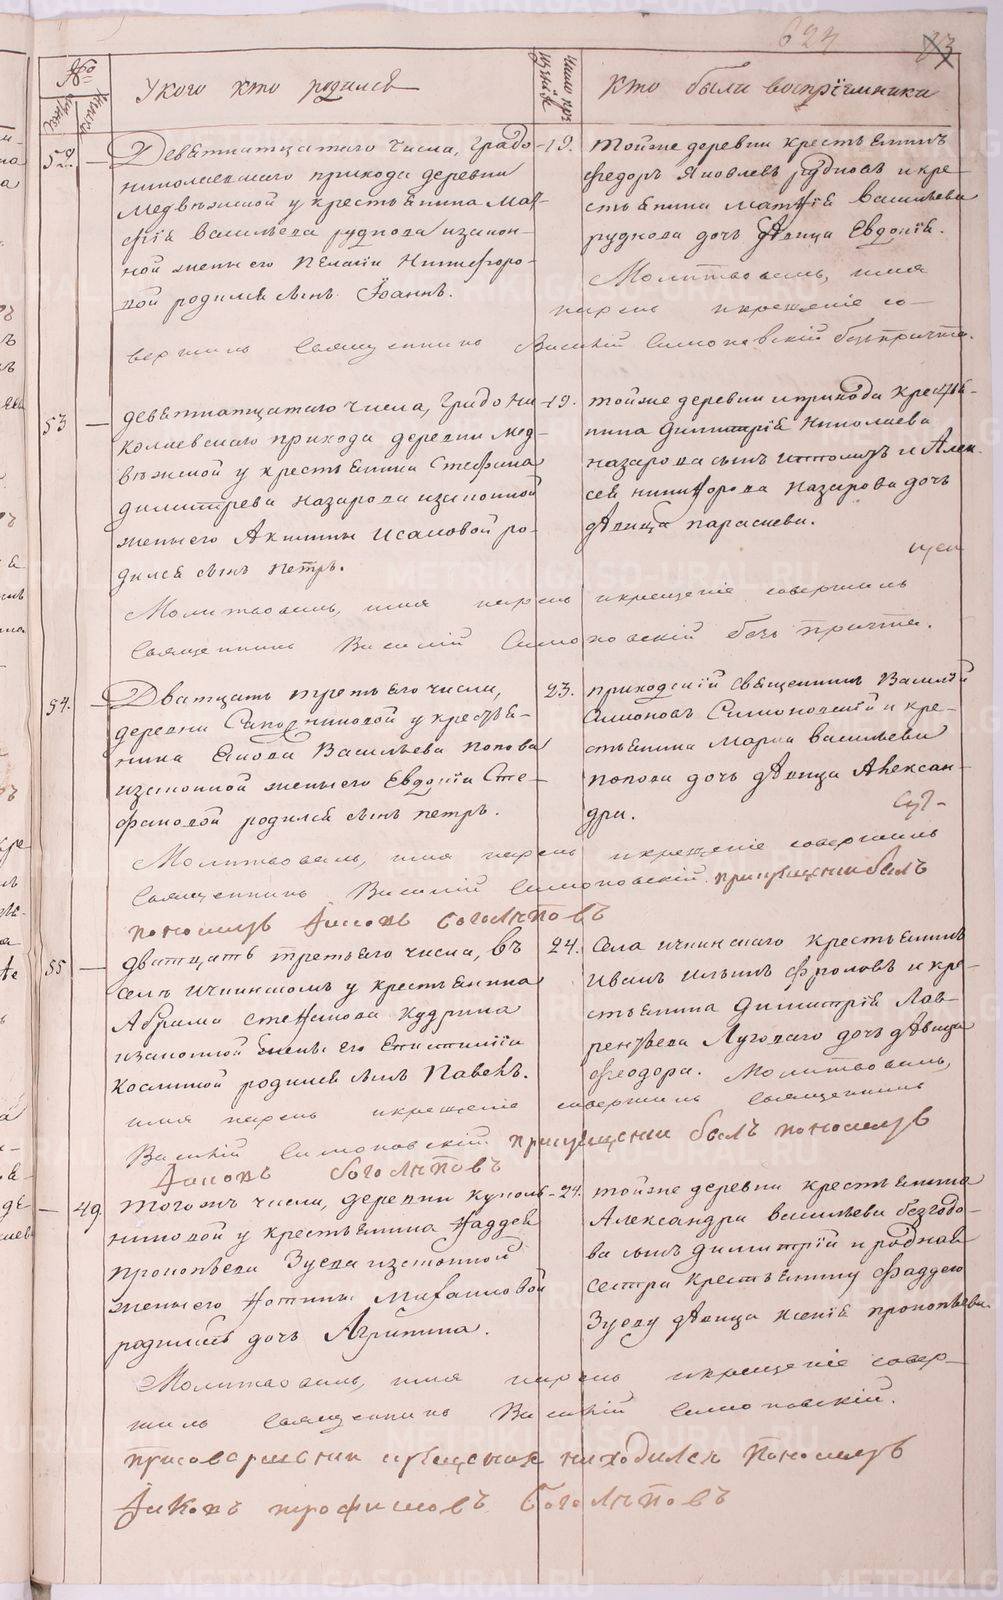 624
83
№
мужес.
женск.
У кого кто родился
Кто были воспріемники
52. Девятнатцатаго числа, градо
николаевскаго прихода деревни
Медвѣжской у крестьянина Мат
фія Васильева Руднова иззакон-
ной жены его Пелагіи Никифоро-
вой родился сынъ Іоаннъ.
19. тойже деревни крестьянинъ
Федоръ Яковлевъ Рудновъ и кре-
стьянина Матфія Васильева
Руднова дочь дѣвица Евдокія.
Молитвовалъ, имя
нарекъ и крещеніе со-
вершилъ Священникъ Василій Симоновскій безъ причта.
53 девятнатцатаго числа, Градо Ни
колаевскаго прихода деревни Мед-
вѣжской у крестьянина Стефана
Димитрева Назарова иззаконной
жены его Акилины Исаковой ро-
дился сынъ Петръ.
19. тойже деревни и прихода крестья-
нина Димитрія Николаева
Назарова сынъ и Алек-
сея Никифорова Назарова дочь
дѣвица Парасκева.
Молитвовалъ, имя нарекъ и крещеніе совершилъ
Священникъ Василій Симоновскій безъ причта.
54. Дватцать третьяго числа,
деревни Сапожниковой у крестья-
нина Якова Васильева Попова
иззаконной жены его Евдокіи Сте-
фановой родился сынъ Петръ.
23. приходскій Священникъ Василій
Симоновъ Симоновскій и кре-
стьянина Марка Васильева
Попова дочь дѣвица Александ-
дра.
Молитвовалъ, имя нарекъ и крещеніе совершилъ
Священникъ Василій Симоновскій. при крещении былъ
пономарь Яковъ Боголѣповъ
55 дватцать третьяго числа, въ
селѣ Ичкинскомъ у крестьянина
Абрама Стефанова Кудрина
иззаконной жены его Епистиміи
Косминой родился сынъ Павелъ.
24. Села Ичкинскаго крестьянинъ
Иванъ Ильинъ Фроловъ и кре-
стьянина Димитрія Лав-
рентьева Луговаго дочь дѣвица
Феодора. Молитвовалъ,
имя нарекъ и крещеніе совершилъ Священникъ
Василій Симоновскій. при крещении былъ пономарь
Яковъ Боголѣповъ
49 Тогожъ числа, деревни
у крестьянина Фаддея
Прокопьева Зуева иззаконной
жены его Фотины Михаиловой
родилась дочь Агрипина.
24. тойже деревни крестьянина
Александра Васильева Безгодо-
ва сынъ Димитрій и родная
сестра крестьянину Фаддею
Зуеву дѣвица Ксенія Прокопьева.
Молитвовалъ, имя нарекъ и крещеніе совер-
шилъ Священникъ Василій Симоновскій.
присовершении крещения находился пономарь
Яковъ Трофимовъ Боголѣповъ